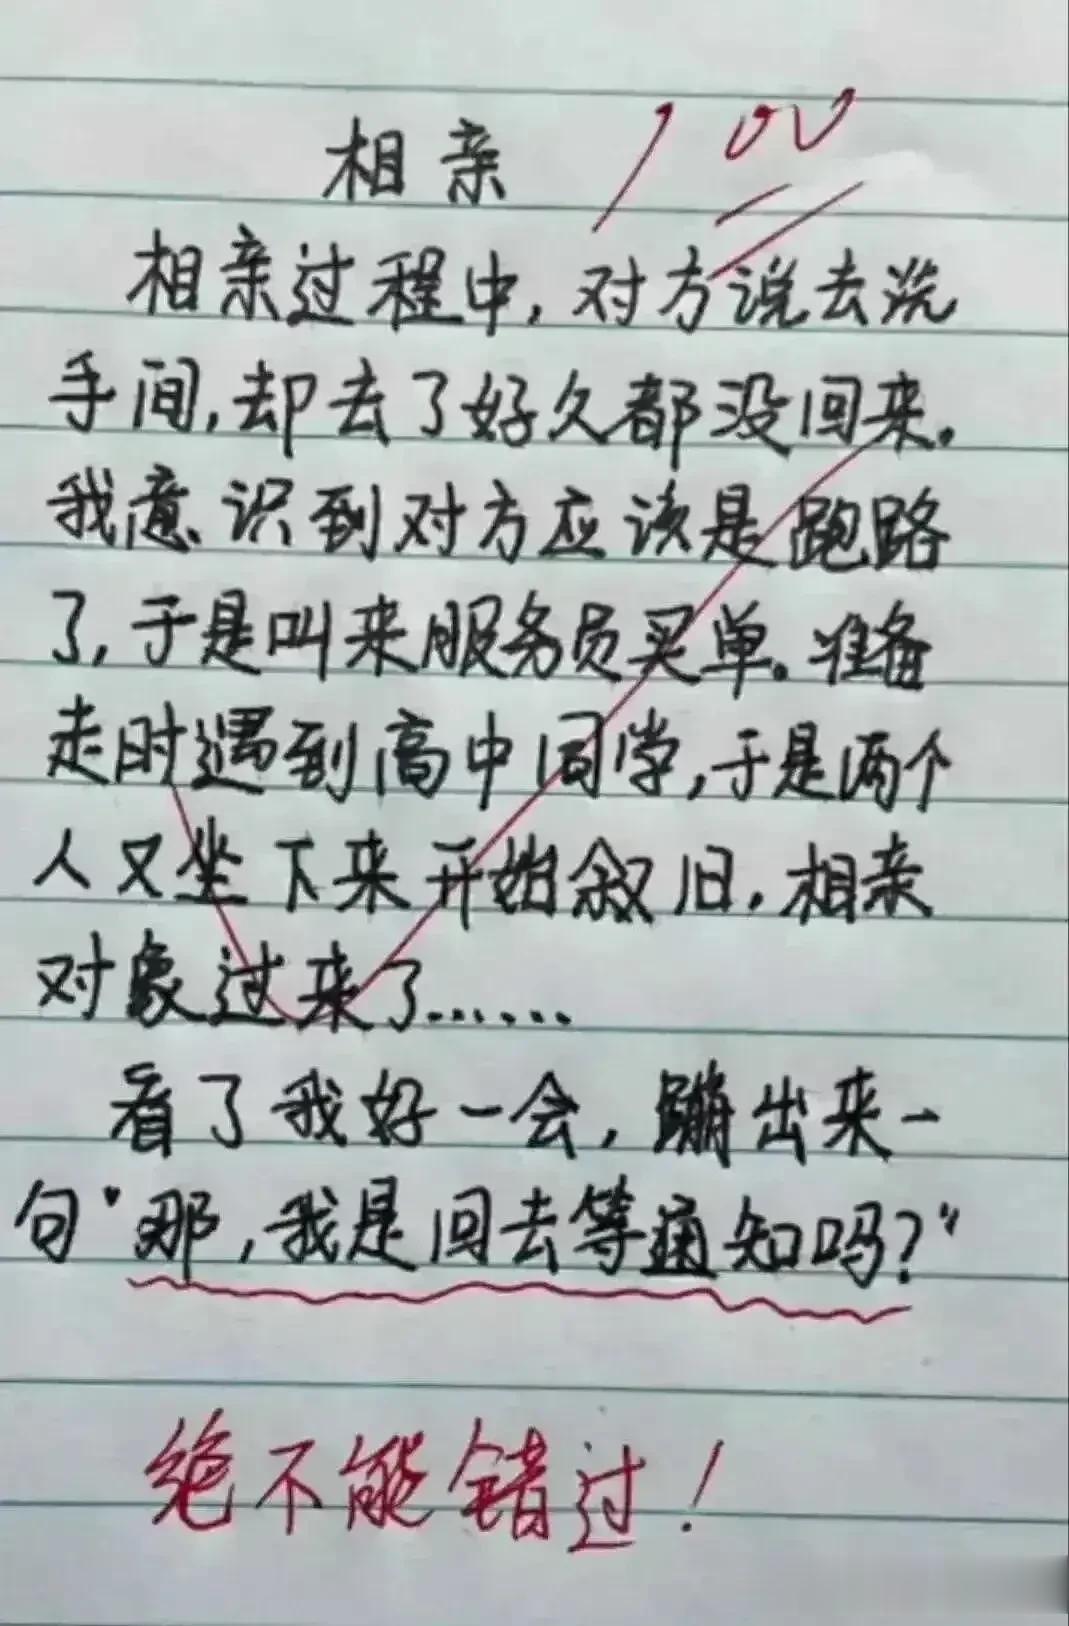 相亲 100
相亲过程中,对方说去洗
手间,却去了好久都没回来。
我意识到对方应该是跑路
了,于是叫来服务员买单。准备
走时遇到高中同学,于是两个
人又坐下来开始叙旧,相亲
对象过来了......
看了我好一会,蹦出来一
句"那,我是回去等通知吗?"
绝不能错过!